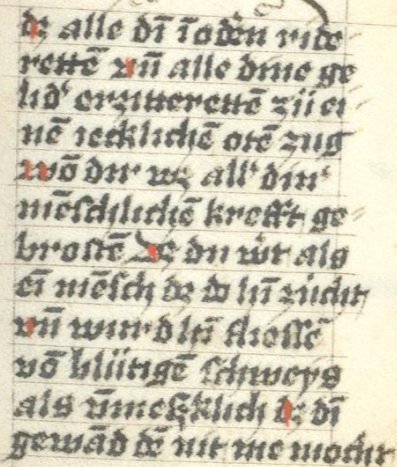 dz alle dī ïodē̄n ride
rettē vn̄ alle dine ge
lid' erzitterettē zü ei
nē iecklichē otē zug
wō dir wz all' din'
mēschlichē krefft ge
brostē Dz du wt als
eī mēsch dz do hī zücht
vn̄ wurd hī fliessē
vō blütigē schweys
als v̄messklich dz dī
gewād dē nit me mocht